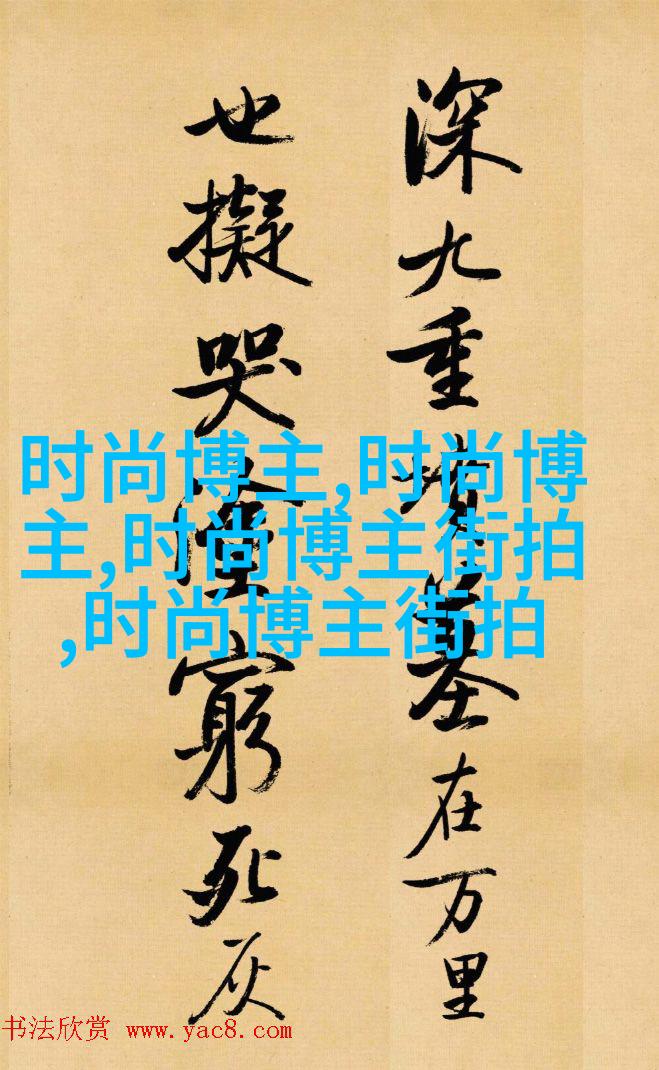 深九重墳墓在万里
也擬哭塗窮死灰
时尚博主,时尚博
主,时尚博主街拍
,时尚博主街拍
书法欣赏 www.yac8.com